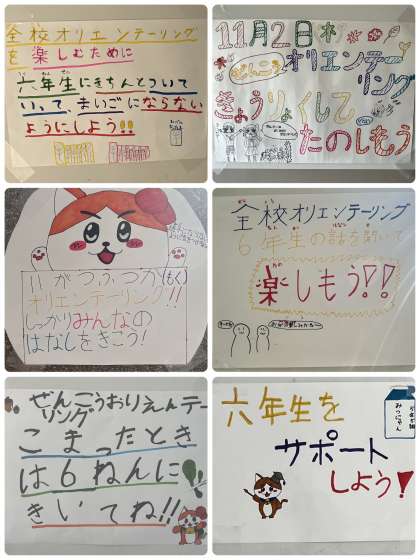 全校オリエンテーリング
を楽しむために
六年生にきちんとついて
いって、まいごにならない
ようにしよう!!
11月2日木
ぜんこう オリエンテー
リング
きょうりょくして
たのしもう
11がつふつか(もく)
オリエンテーリング!!
しっかりみんなの
はなしをきこう!
全校オリエンテーリング
6年生の話を聞いて
楽しもう!!
ぜんこうおりえんテー
リング
こまったとき
は6ねんに
きいてね!!
六年生を
サポート
しよう!
みつにゃん